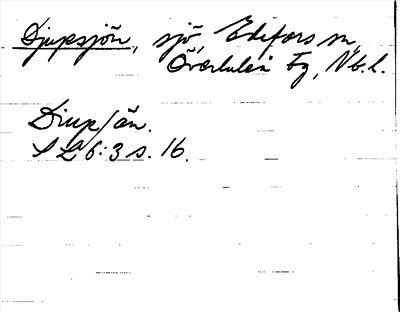 Djupsjön, sjö, Edefors sn,
Överluleå tg, Nb. l.
Diupsån.
S L 6:3 s. 16.